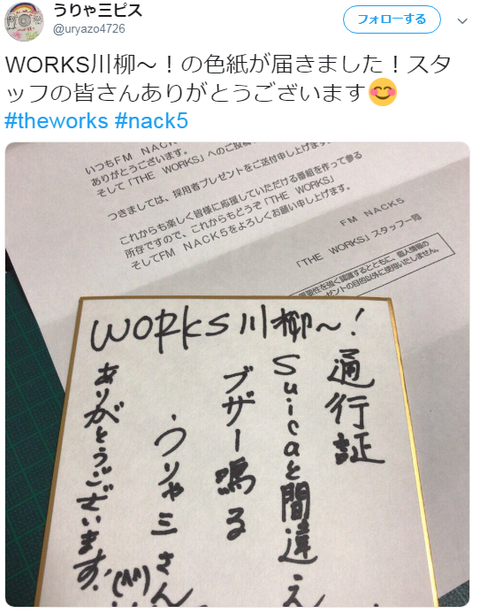 うりゃ三ピス
@uryazo4726
フォローする
WORKS川柳～！の色紙が届きました！スタ
ッフの皆さんありがとうございます😊
#theworks #nack5
いつもFM NACK5
ありがとうございます。
そして「THE WORKS」へのご投稿
つきましては、採用者プレゼントをご送付申し上げます。
これからも楽しく皆様に応援していただける番組を作って参る
所存ですので、これからもどうぞ「THE WORKS」
そしてFM NACK5をよろしくお願い申し上げます。
FM NACK5
「THE WORKS」スタッフ一同
重要性を強く認識するとともに、個人情報の
ゼントの目的以外に使用いたしません。
WORKS川柳～！
通行証
Suicaと間違え
ブザー鳴る
・うりゃ三さん
ありがとうございます!(^^)